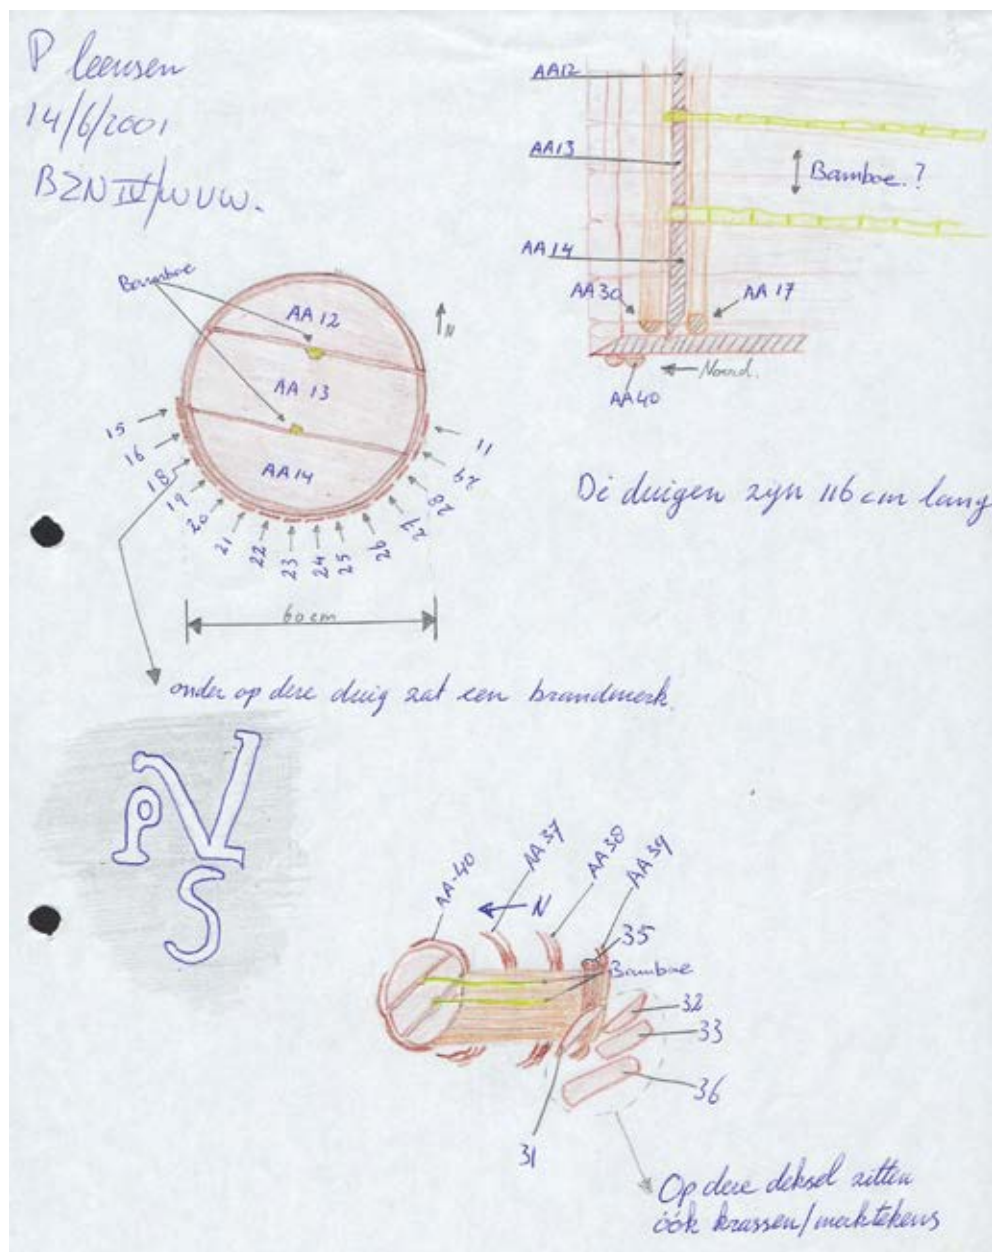 P Leensen
14/6/2001
BZN IV/WUW.
AA12
AA13
Bamboe.?
AA14
AA30
AA17
Noord.
AA40
Bamboe
AA 12
N
AA 13
AA14
15
16
18
19
20
21
22
23
24
25
26
27
28
29
11
60 cm
De duigen zyn 116 cm lang
onder op deze duig zat een brandmerk.
P V
S
AA-40
AA 37
AA 38
AA 39
N
35
Bamboe
32
33
36
31
Op deze deksel zitten
óók krassen/merktekens